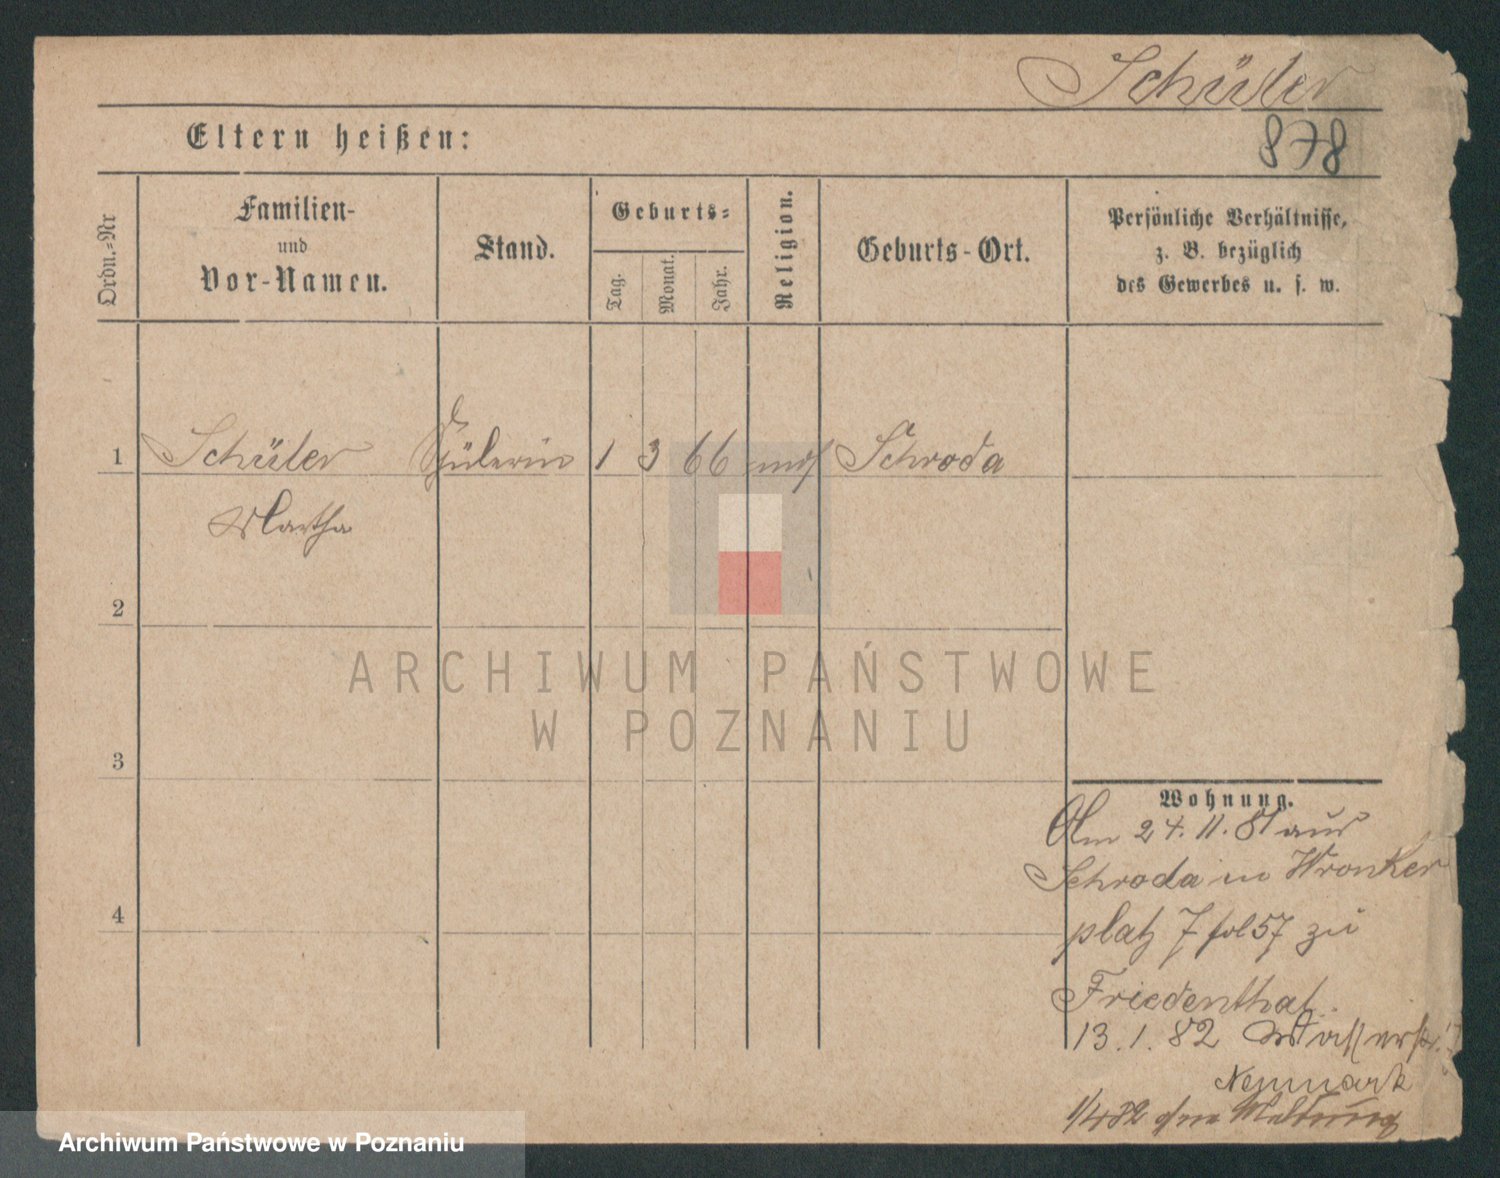 Schüler
Eltern heißen:
878
Ordn.-Nr
Familien-
und
Vor-Namen.
Stand.
Geburts-
Tag.
Monat.
Jahr.
Religion.
Geburts-Ort.
Persönliche Verhältnisse,
z. B. bezüglich
des Gewerbes u. s. w.
1 Schüler Schülerin 1 3 66 mos Schroda
Martha
2
ARCHIWUM PAŃSTWOWE
W POZNANIU
3
Wohnung.
Am 24.11.81 aus
Schroda in Wronker
4
platz 7 fol 57 zu
Friedenthal.
13.1.82 Wasserstr.
Neumark
1/4 82 ohne Meldung
Archiwum Państwowe w Poznaniu